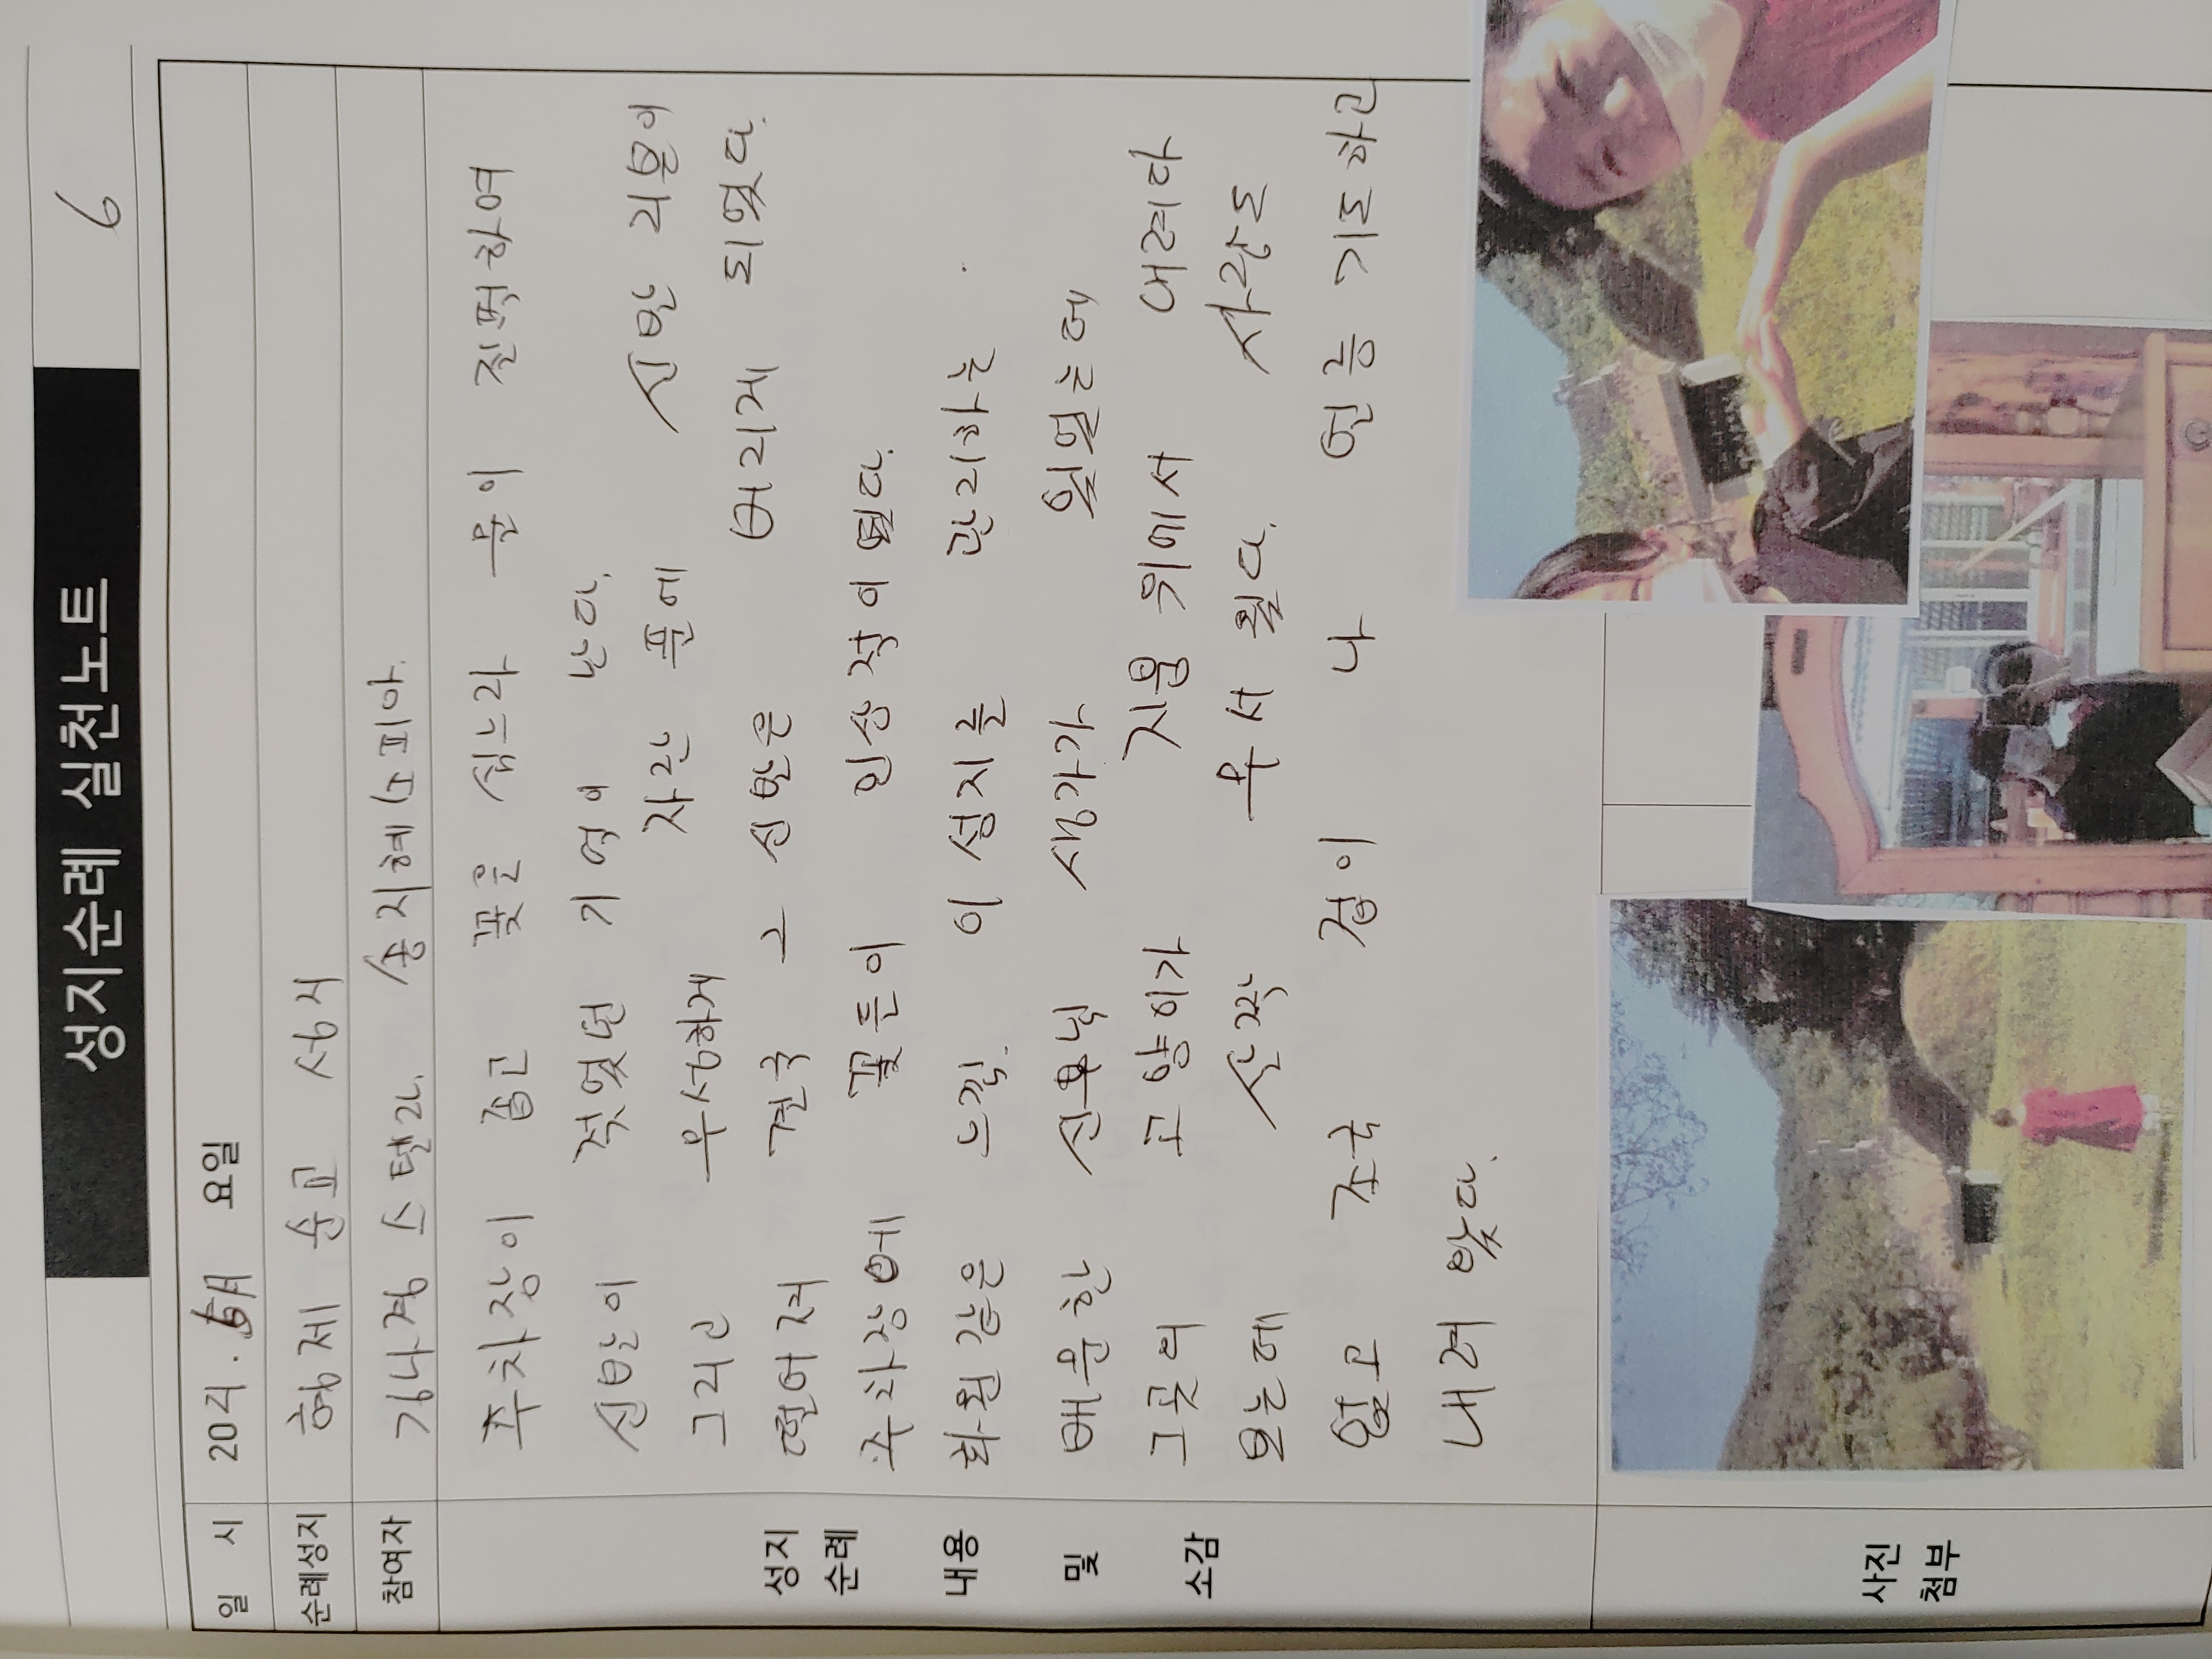 성지순례 실천노트 6
일 시 2021. 5月 요일
순례성지 형제 순교 성지
참여자 김나경 스텔라. 송지혜 소피아.
주차장이 좁고 꽃은 심느라 물이 질퍽하여
신발이 젖었던 기억이 난다.
그리고 무성하게 자란 풀에 신발 리본이
떨어져 결국 그 신발은 버리게 되었다.
주차장에 꽃들이 인상적이였다.
화원같은 느낌. 이 성지를 관리하는
배문한 신부님 생가가 있었는데
그곳의 고양이가 지붕 위에서 내려다
보는데 살짝 무서웠다. 사람도
없고 조금 겁이 나 얼른 기도하고
내려 왔다.
성지
순례
내용
및
소감
사진
첨부